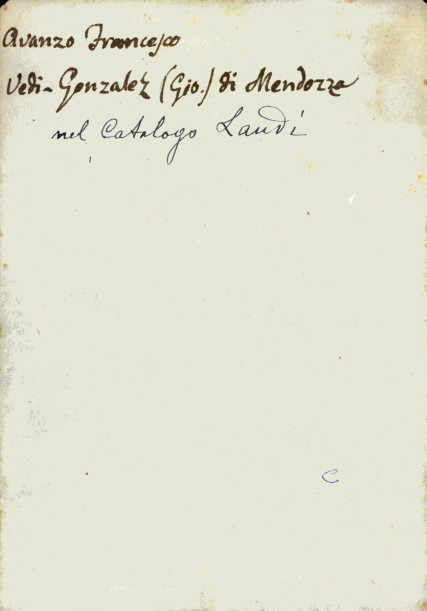 Avanzo Francesco
Vedi - Gonzalez (Gio.) di Mendozza
nel Catalogo Landi
C